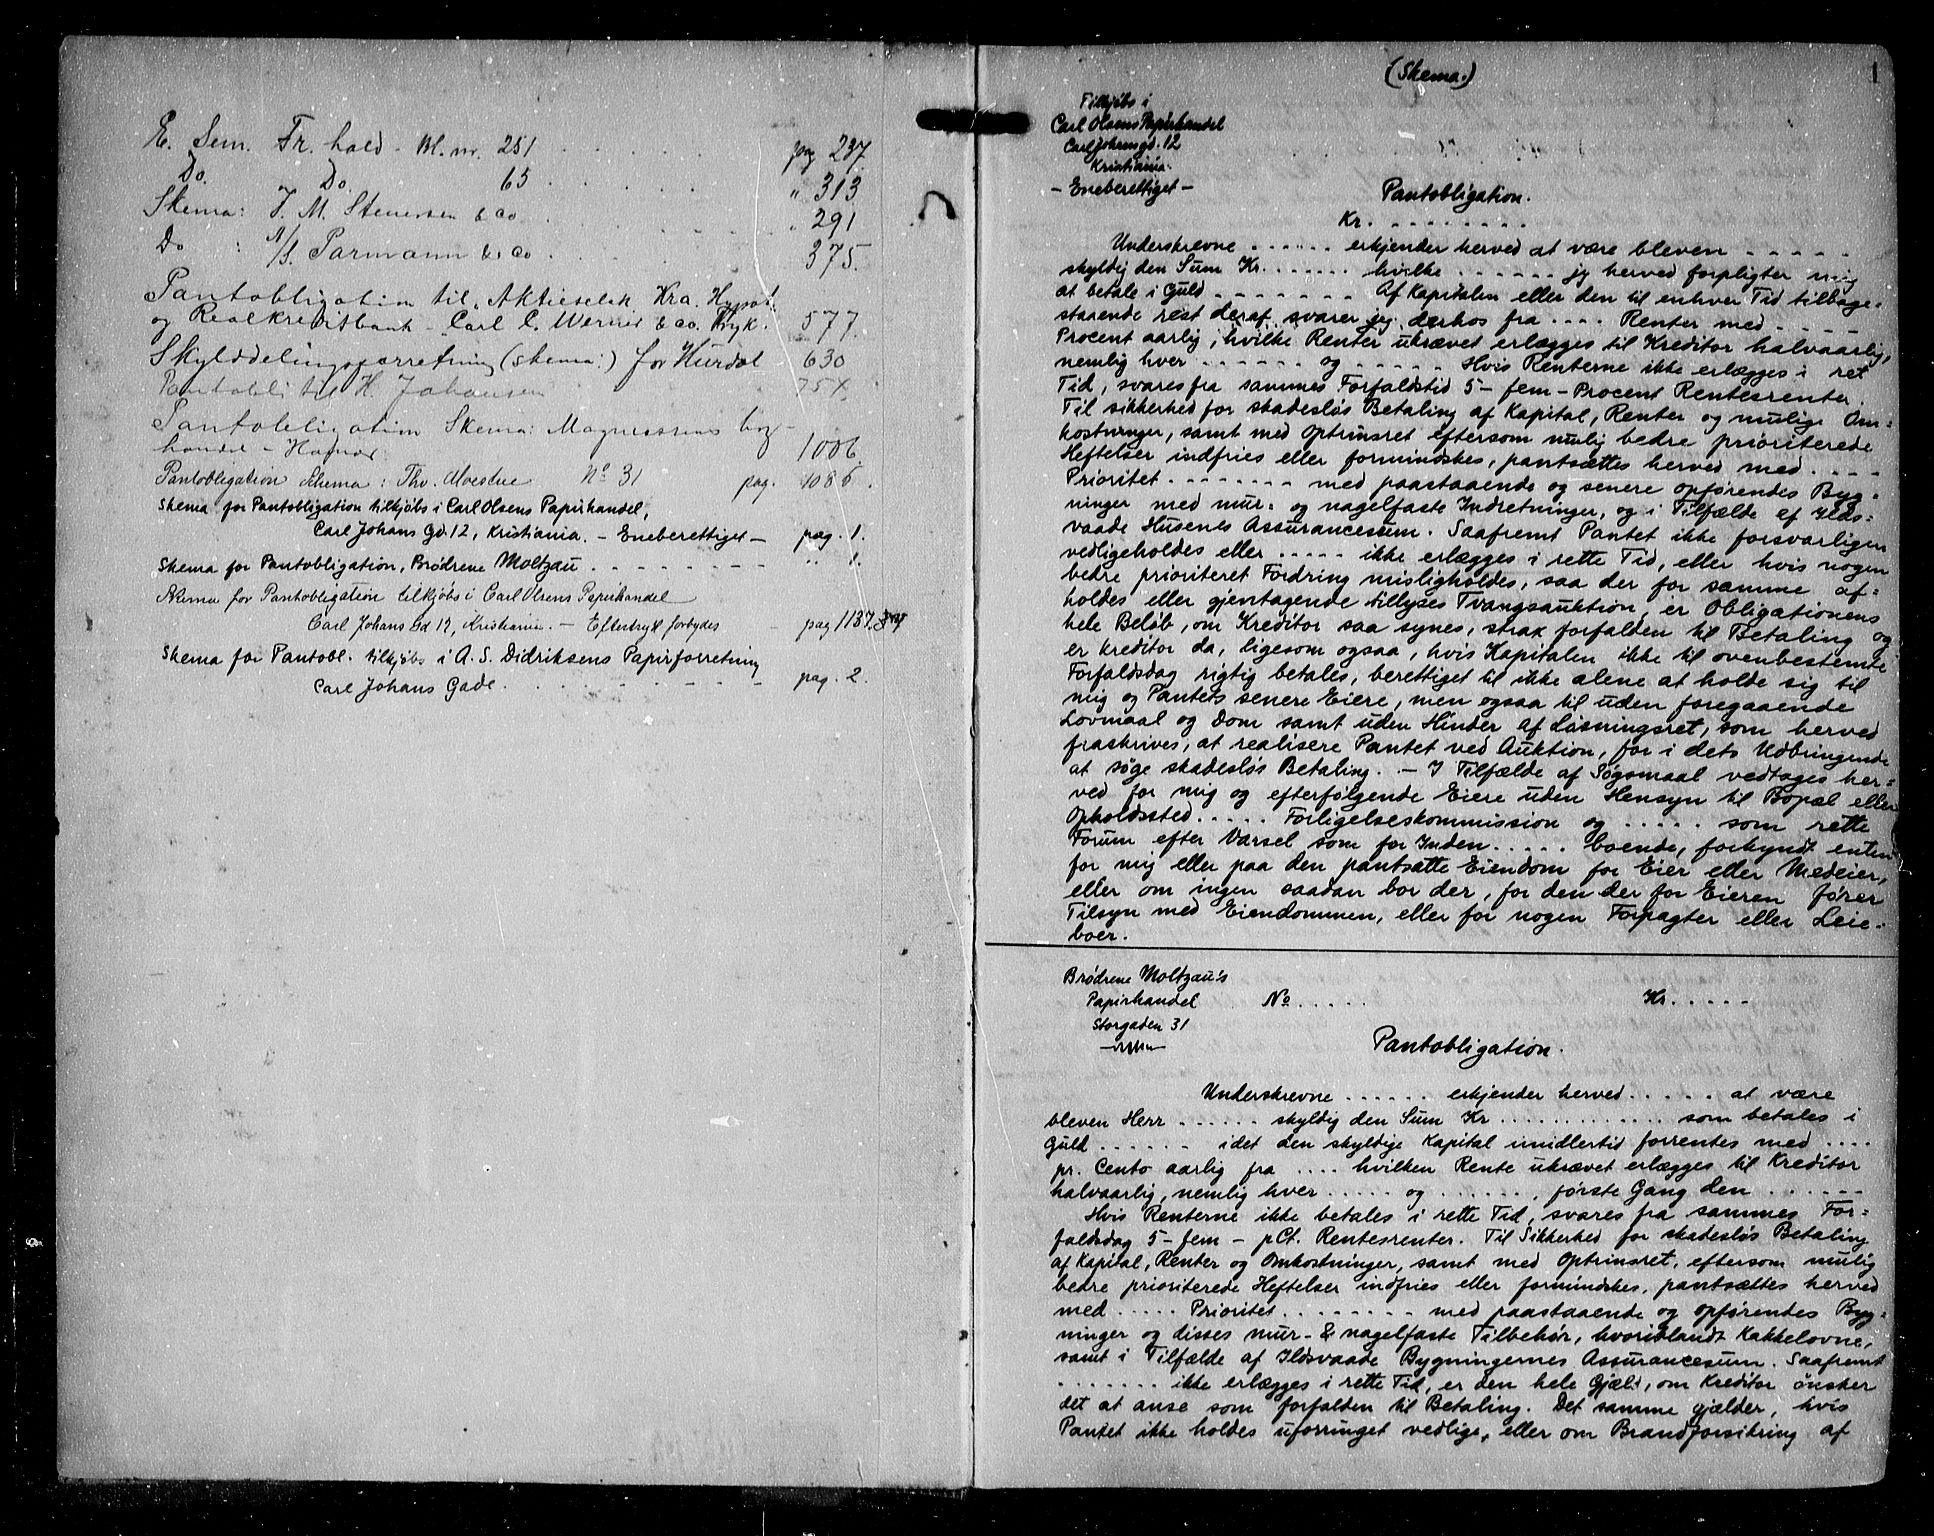 E. Sem. Fr.hald - Bl. nr. 251 . . . . . . pag 237.
Do. Do. 65 . . . . . . " 313
Skema: J. M. Stenersen & Co . . . . . . " 291
Do : A/S. Parmann & Co . . . . . . 375.
Pantobligation til Aktieselsk Kra. Hypot.
og Realkreditbank - Carl C. Werner & co. Tryk. 577.
Skylddelingsforretning (skema:) for Hurdal 630
Pantobli til H. Johansen 754.
Pantobligation Skema: Magnussens bog-
handel - Hamar 1006.
Pantobligation Schema: Thv. Moestue No 31 pag. 1086.
Skema for Pantobligation tilkjøbs i Carl Olsens Papirhandel,
Carl Johans Gd. 12, Kristiania. - Eneberettiget - pag. 1.
Skema for Pantobligation, Brødrene Moltzau . . . . . . " 1.
Skema for Pantobligation tilkjøbs i Carl Olsens Papirhandel
Carl Johans Gd 12, Kristiania. - Eftertryk forbydes - pag 1137.
Skema for Pantobl. tilkjøbs i A. S. Didriksens Papirforretning
Carl Johans Gade. . . . . . . pag. 2.
1
(Skema.)
Tilkjøbs i
Carl Olsens Papirhandel
Carl Johansgd. 12
Kristiania.
- Eneberettiget -
Pantobligation.
Kr. . . . . . . . .
Underskrevne . . . . . . erkjender herved at være bleven . . . . .
skyldig den Sum Kr. . . . . . . hvilke . . . . . . jeg herved forpligter mig
at betale i Guld . . . . . . . Af Kapitalen eller den til enhver Tid tilbage-
staaende rest deraf svarer jeg derhos fra . . . . Renter med . . . . .
Procent aarlig, hvilke Renter ukrævet erlægges til Kreditor halvaarlig,
nemlig hver . . . . . . og . . . . . . Hvis Renterne ikke erlægges i ret
Tid, svares fra sammes Forfaldstid 5 - fem - Procent Rentesrenter.
Til sikkerhed for skadesløs Betaling af Kapital, Renter og mulige Om-
kostninger, samt med Optrinsret eftersom mulig bedre prioriterede
Heftelser indfries eller formindskes, pantsættes herved med . . . .
Prioritet . . . . . . . med paastaaende og senere opførendes Byg-
ninger med mur- og nagelfaste Indretninger, og i Tilfælde af Ilds-
vaade Husenes Assurancesum. Saafremt Pantet ikke forsvarligen
vedligeholdes eller . . . . . ikke erlægges i rette Tid, eller hvis nogen
bedre prioriteret Fordring misligholdes, saa der for samme af-
holdes eller gjentagende tillyses Tvangsauktion, er Obligationens
hele Beløb, om Kreditor saa synes, strax forfalden til Betaling og
er kreditor da, ligesom ogsaa, hvis Kapitalen ikke til ovenbestemte
Forfaldsdag rigtig betales, berettiget til ikke alene at holde sig til
mig og Pantets senere Eiere, men ogsaa til uden foregaaende
Lovmaal og Dom samt uden Hinder af Løsningsret, som herved
fraskrives, at realisere Pantet ved Auktion, for i dets Udbringende
at søge skadesløs Betaling. - I Tilfælde af Søgsmaal vedtages her-
ved for mig og efterfølgende Eiere uden Hensyn til Bopæl eller
Opholdssted . . . . . Forligelseskommission og . . . . . som rette
Forum efter Varsel som for Inden . . . . . boende, forkyndt enten
for mig eller paa den pantsatte Eiendom for Eier eller Medeier,
eller om ingen saadan bor der, for den der for Eieren fører
Tilsyn med Eiendommen, eller for nogen Forpagter eller Leie-
boer.
Brødrene Moltzau's
Papirhandel No . . . . . Kr. . . . . .
Storgaden 31
Pantobligation.
Underskrevne . . . . . . erkjender herved . . . . . at være
bleven Herr . . . . . . skyldig den Sum Kr . . . . . . . . . . . som betales i
Guld . . . . . . idet den skyldige Kapital imidlertid forrentes med . . . .
pr. Cento aarlig fra . . . . hvilken Rente ukrævet erlægges til Kreditor
halvaarlig, nemlig hver . . . . . og . . . . . . , første Gang den . . . . . .
Hvis Renterne ikke betales i rette Tid, svares fra sammes For-
faldsdag 5 - fem - pCt. Rentesrenter. Til Sikkerhed for skadesløs Betaling
af Kapital, Renter og Omkostninger, samt med Optrinsret, eftersom mulig
bedre prioriterede Heftelser indfries eller formindskes, pantsættes herved
med . . . . . Prioritet . . . . . . . . med paastaaende og opførendes Byg-
ninger og disses mur- & nagelfaste Tilbehør, hvoriblandt Kakkelovne,
samt i Tilfælde af Ildsvaade Bygningernes Assurancesum. Saafremt
. . . . . . . ikke erlægges i rette Tid, er den hele Gjæld, om Kreditor ønsker
det at anse som forfalden til Betaling. Det samme gjælder, hvis
Pantet ikke holdes uforringet vedlige, eller om Brandforsikring af